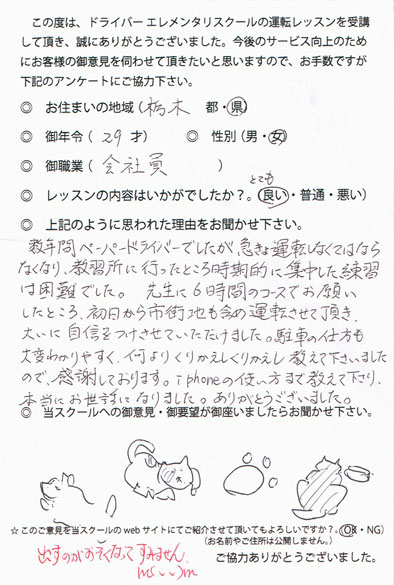 この度は、ドライバー エレメンタリスクールの運転レッスンを受講
して頂き、誠にありがとうございました。今後のサービス向上のため
にお客様の御意見を伺わせて頂きたいと思いますので、お手数ですが
下記のアンケートにご協力下さい。
◎ お住まいの地域（栃木 都・県）
◎ 御年令（ 29 才） ◎ 性別（男・女）
◎ 御職業（ 会社員 ）
とても
◎ レッスンの内容はいかがでしたか？。（良い・普通・悪い）
◎ 上記のように思われた理由をお聞かせ下さい。
数年間ペーパードライバーでしたが急きょ運転しなくてはなら
なくなり、教習所に行ったところ時期的に集中した練習
は困難でした。 先生に6時間のコースでお願い
したところ、初日から市街地も含め運転させて頂き、
大いに自信をつけさせていただけました。駐車の仕方も
大変わかりやすく、何よりくりかえしくりかえし教えて下さいました
ので、感謝しております。iphoneの使い方まで教えて下さり、
本当にお世話になりました。ありがとうございました。
◎ 当スクールへの御意見・御要望が御座いましたらお聞かせ下さい。
☆このご意見を当スクールのwebサイトにてご紹介させて頂いてもよろしいですか？。（OK・NG）
（お名前やご住所は公開しません。）
出すのがおそくなってすみません
m(_ _)m
ご協力ありがとうございました。